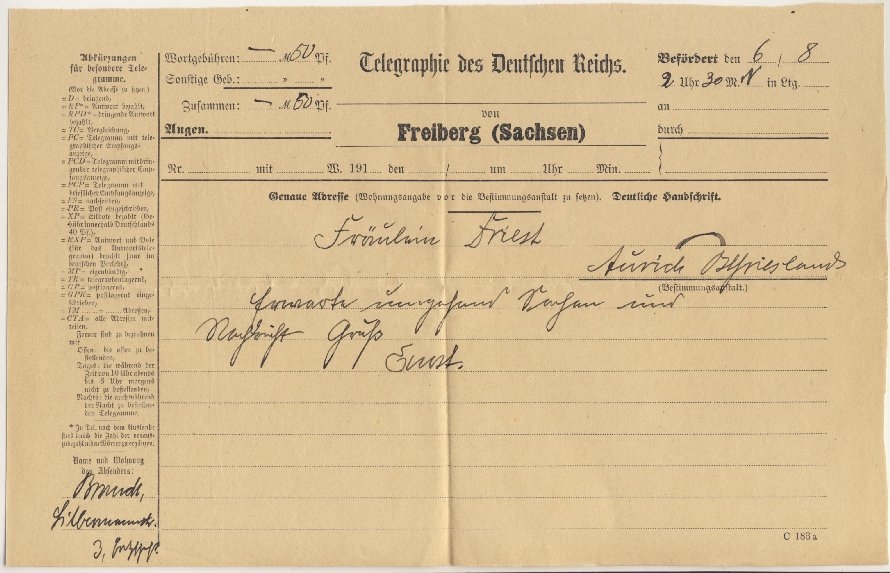 Abkürzungen
für besondere Tele-
gramme.
(Vor die Adresse zu setzen)
= D = dringend,
= RP* = Antwort bezahlt,
= RPD = dringende Antwort
bezahlt,
= TC = Vergleichung,
= PC = Telegramm mit tele-
graphischer Empfangs-
anzeige,
= PCD = Telegramm mit drin-
gender telegraphischer Emp-
fangsanzeige,
= PCP = Telegramm mit
brieflicher Empfangsanzeige,
= FS = nachsenden,
= PR = Post eingeschrieben,
= XP = Eilbote bezahlt (Ge-
bühr innerhalb Deutschlands
40 Pf.),
= RXP = Antwort und Bote
(für das Antworttele-
gramm) bezahlt (nur im
deutschen Verkehr),
= MP = eigenhändig,
= TR = telegraphenlagernd,
= GP = postlagernd,
= GPR = postlagernd einge-
schrieben,
= TM ........ = Adressen,
= CTA = alle Adressen mit-
teilen.
Ferner sind zu bezeichnen
mit
Offen: die offen zu be-
stellenden,
Tages: die während der
Zeit von 10 Uhr abends
bis 6 Uhr morgens
nicht zu bestellenden,
Nachts: die auch während
der Nacht zu bestellen-
den Telegramme.
* In Tel. nach dem Auslande
stets durch die Zahl der voraus-
zubezahlenden Wörter zu ergänzen.
Name und Wohnung
des Absenders:
Brandt,
Silbermannstr.
3,
Wortgebühren: — M 50 Pf.
Sonstige Geb.: „ „
Zusammen: — M 50 Pf.
Angen.
Telegraphie des Deutschen Reichs.
von
Freiberg (Sachsen)
Befördert den 6 / 8
2 Uhr 30 M. N in Ltg.
an
durch
Nr. mit W. 191 den / um Uhr Min.
Genaue Adresse (Wohnungsangabe vor die Bestimmungsanstalt zu setzen). Deutliche Handschrift.
Fräulein Driest
Aurich Ostfriesland
(Bestimmungsanstalt.)
Erwarte umgehend Sachen und
Nachricht Gruß
Ernst.
C 183a